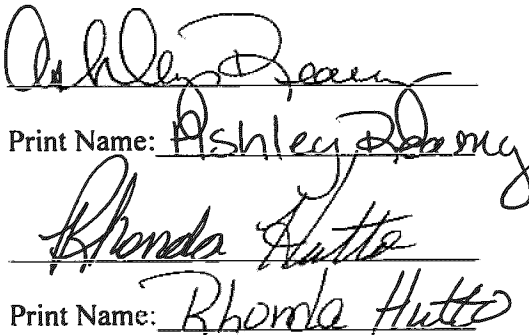 Ashley
Print Name: Ashley
Rhonda Hutto
Print Name: Rhonda Hutto